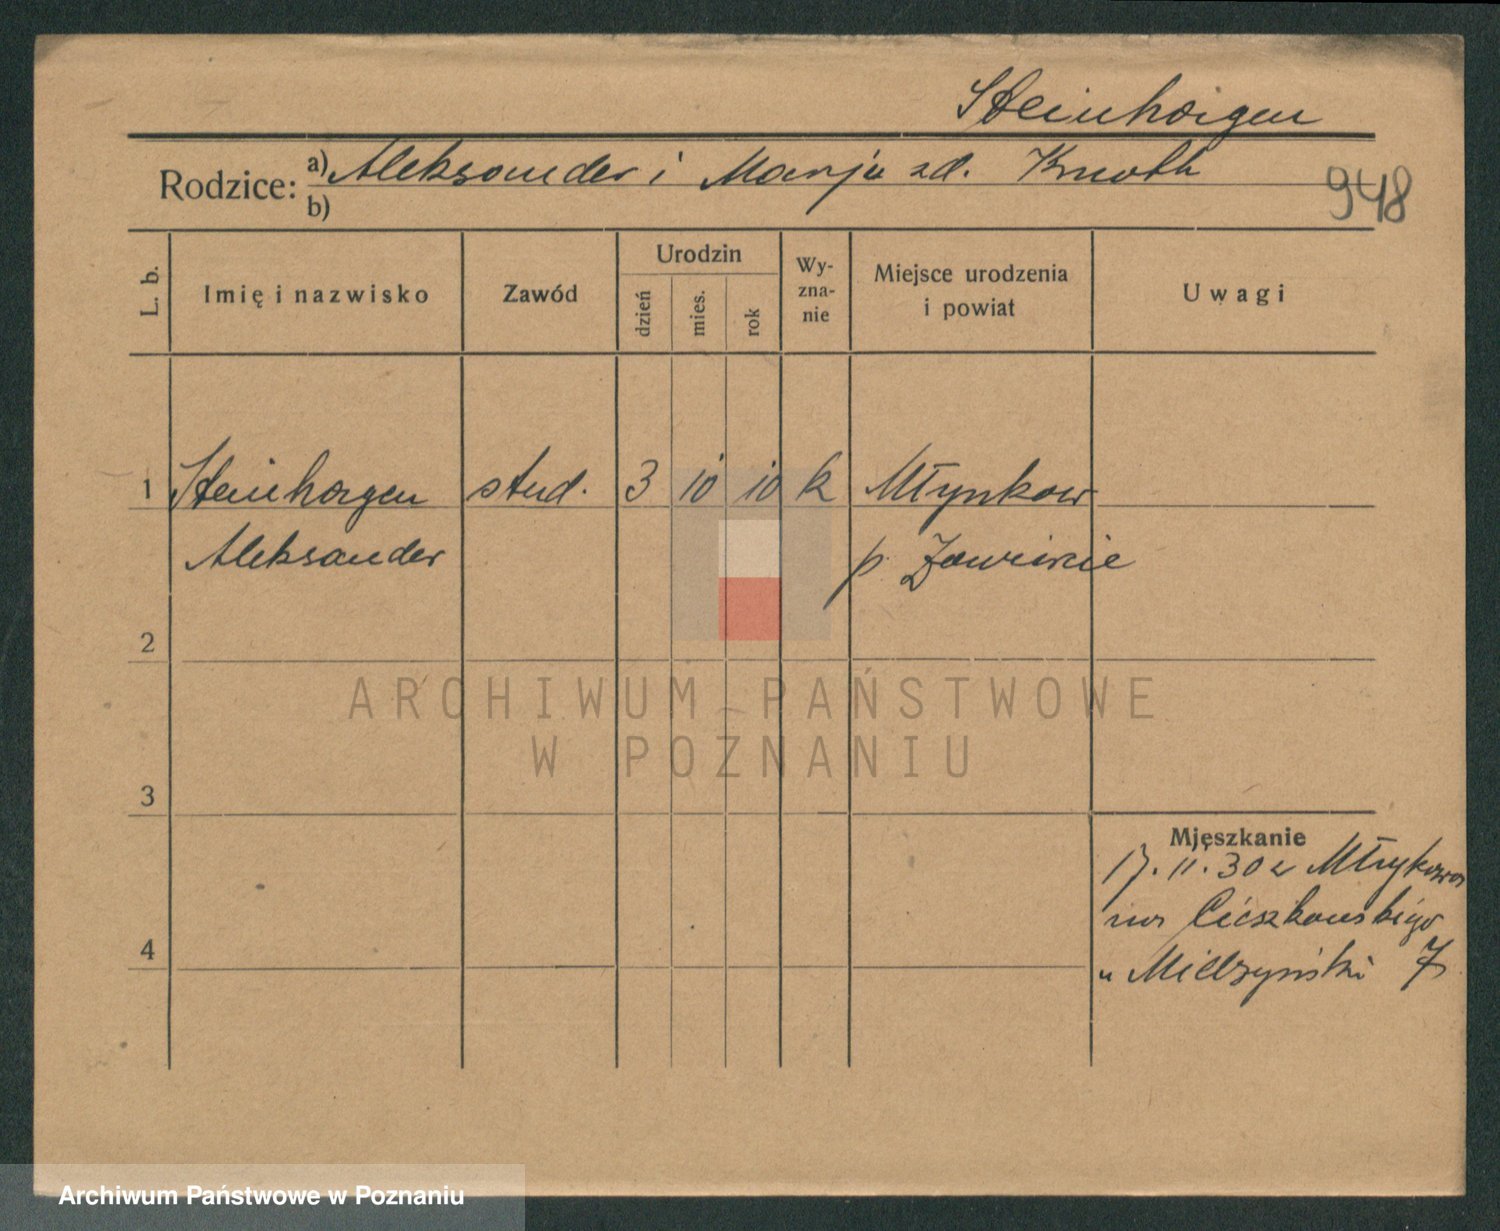 Steinhagen
Rodzice: a) Aleksander i Marja zd. Knoth
b)
948
L. b.
Imię i nazwisko
Zawód
Urodzin
dzień
mies.
rok
Wy-
zna-
nie
Miejsce urodzenia
i powiat
Uwagi
1 Steinhagen stud. 3 10 10 k Młynkow
Aleksander p.
2
3
4
Mieszkanie
17.11.30 z
na Cieszkowskiego
u Mielżyński 7
ARCHIWUM PAŃSTWOWE
W POZNANIU
Archiwum Państwowe w Poznaniu